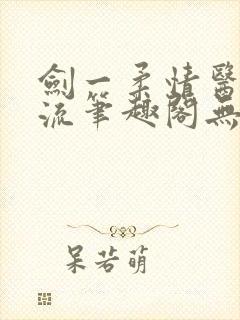 劍一柔情醫
流筆趣閣無
呆若萌